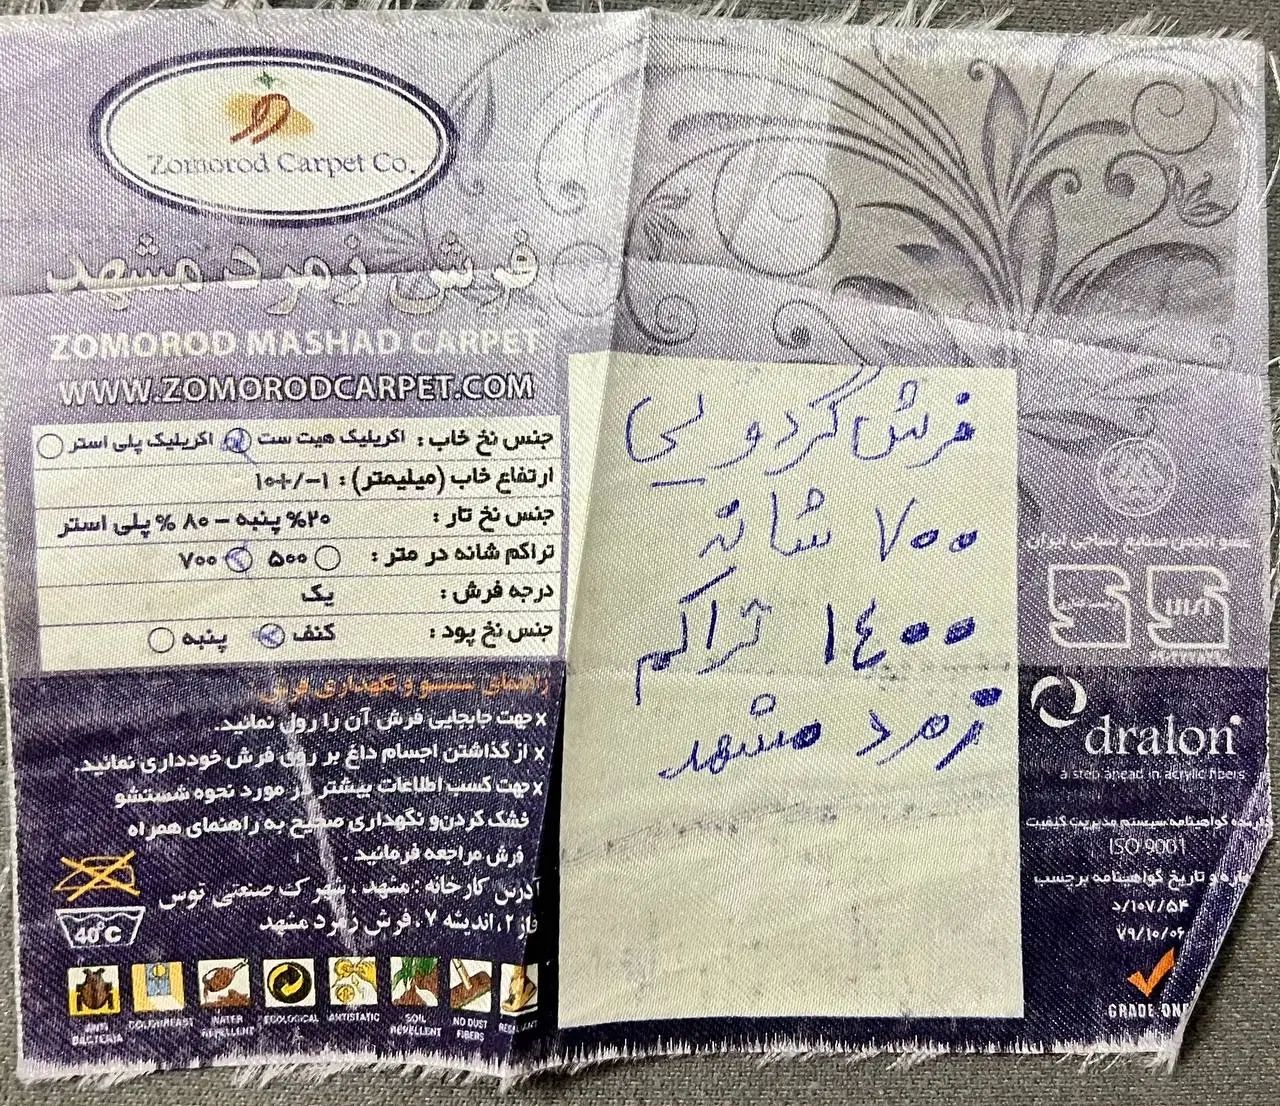 Zomorod Carpet Co.
فرش زمرد مشهد
ZOMOROD MASHAD CARPET
WWW.ZOMORODCARPET.COM
جنس نخ خاب : اکریلیک هیت ست اکریلیک پلی استر
ارتفاع خاب (میلیمتر) : ۱-/+۱۰
جنس نخ تار : ۲۰% پنبه - ۸۰ % پلی استر
تراکم شانه در متر : ۵۰۰ ۷۰۰
درجه فرش : یک
جنس نخ پود : کنف پنبه
راهنمای شستشو و نگهداری فرش
x جهت جابجایی فرش آن را رول نمائید.
x از گذاشتن اجسام داغ بر روی فرش خودداری نمائید.
x جهت کسب اطلاعات بیشتر در مورد نحوه شستشو
خشک کردن و نگهداری صحیح به راهنمای همراه
فرش مراجعه فرمائید .
آدرس کارخانه : مشهد ، شهرک صنعتی توس
فاز ۲، اندیشه ۷ ، فرش زمرد مشهد
40°C
ANTI BACTERIA
COLOURFAST
WATER REPELLENT
ECOLOGICAL
ANTISTATIC
SOIL REPELLENT
NO DUST FIBERS
فرش گردویی
۷۰۰ شانه
۱۴۰۰ تراکم
زمرد مشهد
dralon
a step ahead in acrylic fibers
گواهینامه سیستم مدیریت کیفیت
ISO 9001
و تاریخ گواهینامه برچسب
۱۰۷/۵۴/د
۷۹/۱۰/۰۶
GRADE ONE